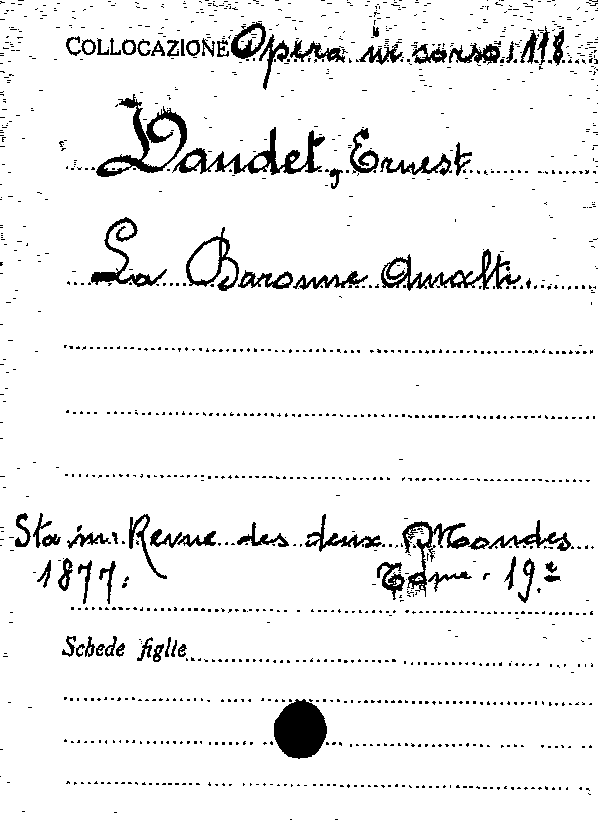 COLLOCAZIONE Opera in corso 118
Daudet, Ernest
La Baronne Amalti.
Sta in: Revue des deux Mondes
1877. Tome. 19.e
Schede figlie